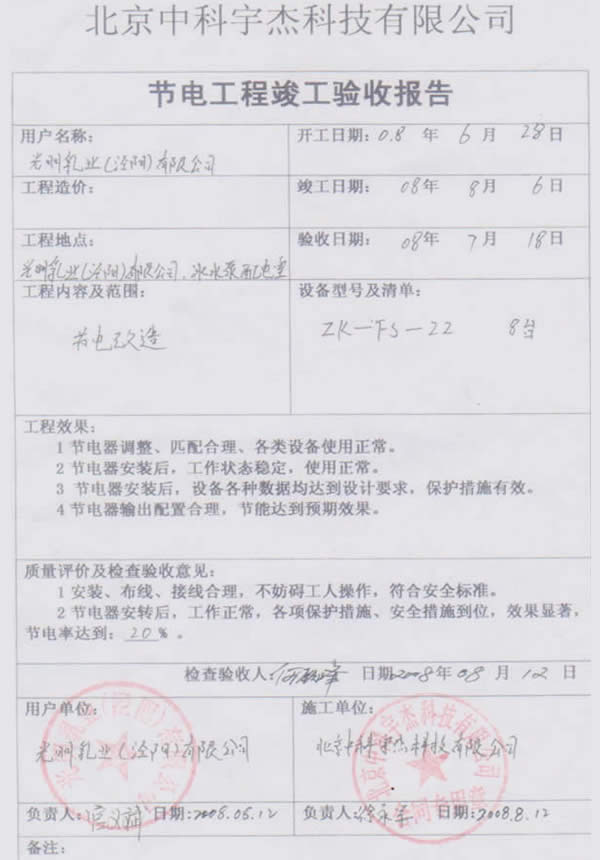 北京中科宇杰科技有限公司
节电工程竣工验收报告
用户名称:
光明乳业(泾阳)有限公司
开工日期: 0.8 年 6 月 28 日
工程造价:
竣工日期: 08 年 8 月 6 日
工程地点:
光明乳业(泾阳)有限公司、冰水泵配电室
验收日期: 08 年 7 月 18 日
工程内容及范围:
节电改造
设备型号及清单:
ZK-FS-22 8台
工程效果:
1 节电器调整、匹配合理、各类设备使用正常。
2 节电器安装后,工作状态稳定,使用正常。
3 节电器安装后,设备各种数据均达到设计要求,保护措施有效。
4 节电器输出配置合理,节能达到预期效果。
质量评价及检查验收意见:
1 安装、布线、接线合理,不妨碍工人操作,符合安全标准。
2 节电器安转后,工作正常,各项保护措施、安全措施到位,效果显著,
节电率达到: 20% 。
检查验收人: 日期 2008 年 08 月 12 日
用户单位:
光明乳业(泾阳)有限公司
施工单位:
北京中科宇杰科技有限公司
负责人: 日期: 2008.05.12
负责人: 日期: 2008.8.12
备注: